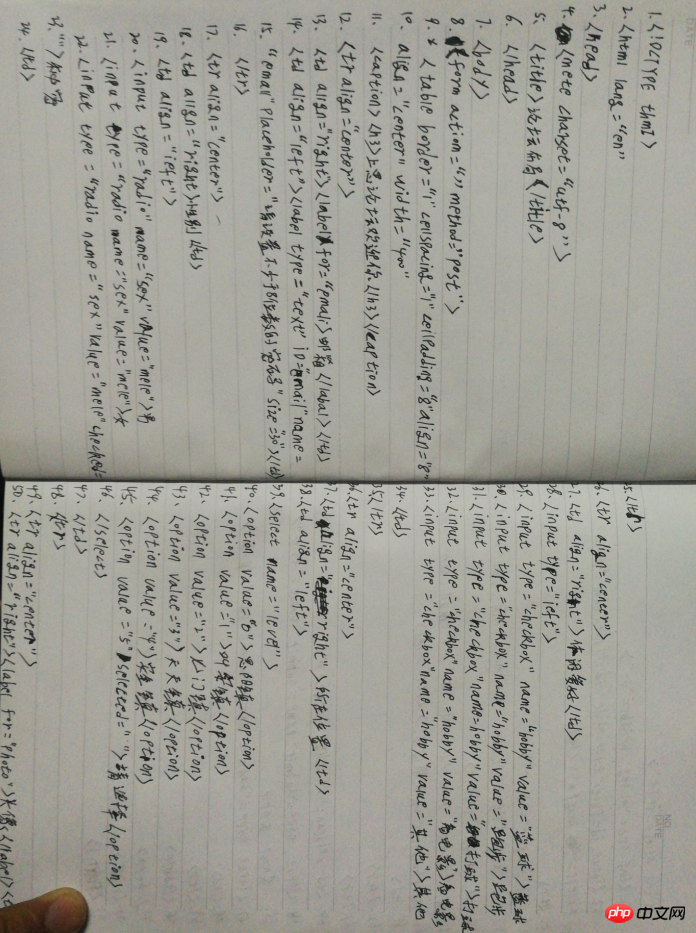 1. <!DCTYPE thml>
2. <html lang="en"
3. <head>
4. <mete chatset="utf-8">
5. <title> <title>
6. </head>
7. <body>
8. <form action="" method="post">
9. <table border="1" cellspacing="1" cellpadding="8" align="8"
10. align="center" width="400"
11. <caption><h3> </h3></caption>
12. <tr align="center">
13. <td align="right><label for="email>邮箱</label><td>
14. <td align="left"><label type="text" id=email"name=
15. "email" placeholder=" " size="30"><td>
16. </tr>
17. <tr align="center">
18. <td align="right>性别<td>
19. <td align="left">
20. <input type="radio" name="sex" value="mele">男
21. <input type="radio name="sex" value="mele">女
22. <input type="radio name="sex" value="mele" checked=
23. "">
24. <td>
25. <tr>
26. <tr align="center">
27. <td align="right"> <td>
28. <input type="left">
29. <input type="checkbox" name="hobby" value="篮球">篮球
30. <input type="checkbox" name="hobby" value="跑步">跑步
31. <input type="checkbox" name=hobby" value="打球">打球
32. <input type="checkbox" name="hobby" value="看电影>看电影
33. <input type="checkbox"name="hobby" value="其他">其他
34. <td>
35. <tr>
36. <tr align="center">
37. <td align="right">所在位置<td>
38. <td align="left">
39. <select name="level">
40. <option value="0"> <option>
41. <option value="1"> <option>
42. <option value="2"> <option>
43. <option value="3"> <option>
44. <option value="4"> <option>
45. <option value="5" selected=""> <option>
46. </select>
47. <td>
48. <tr>
49. <tr align="center">
50. <tr align="right"><label for="photo">头像<label>
php 中文网